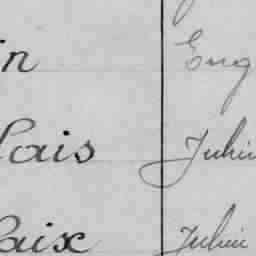 in Eug
lais Julie
aix Julie